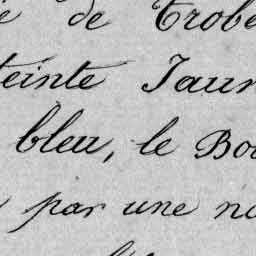 de Trobe
teinte Jaun
bleu, le Bo
par une no